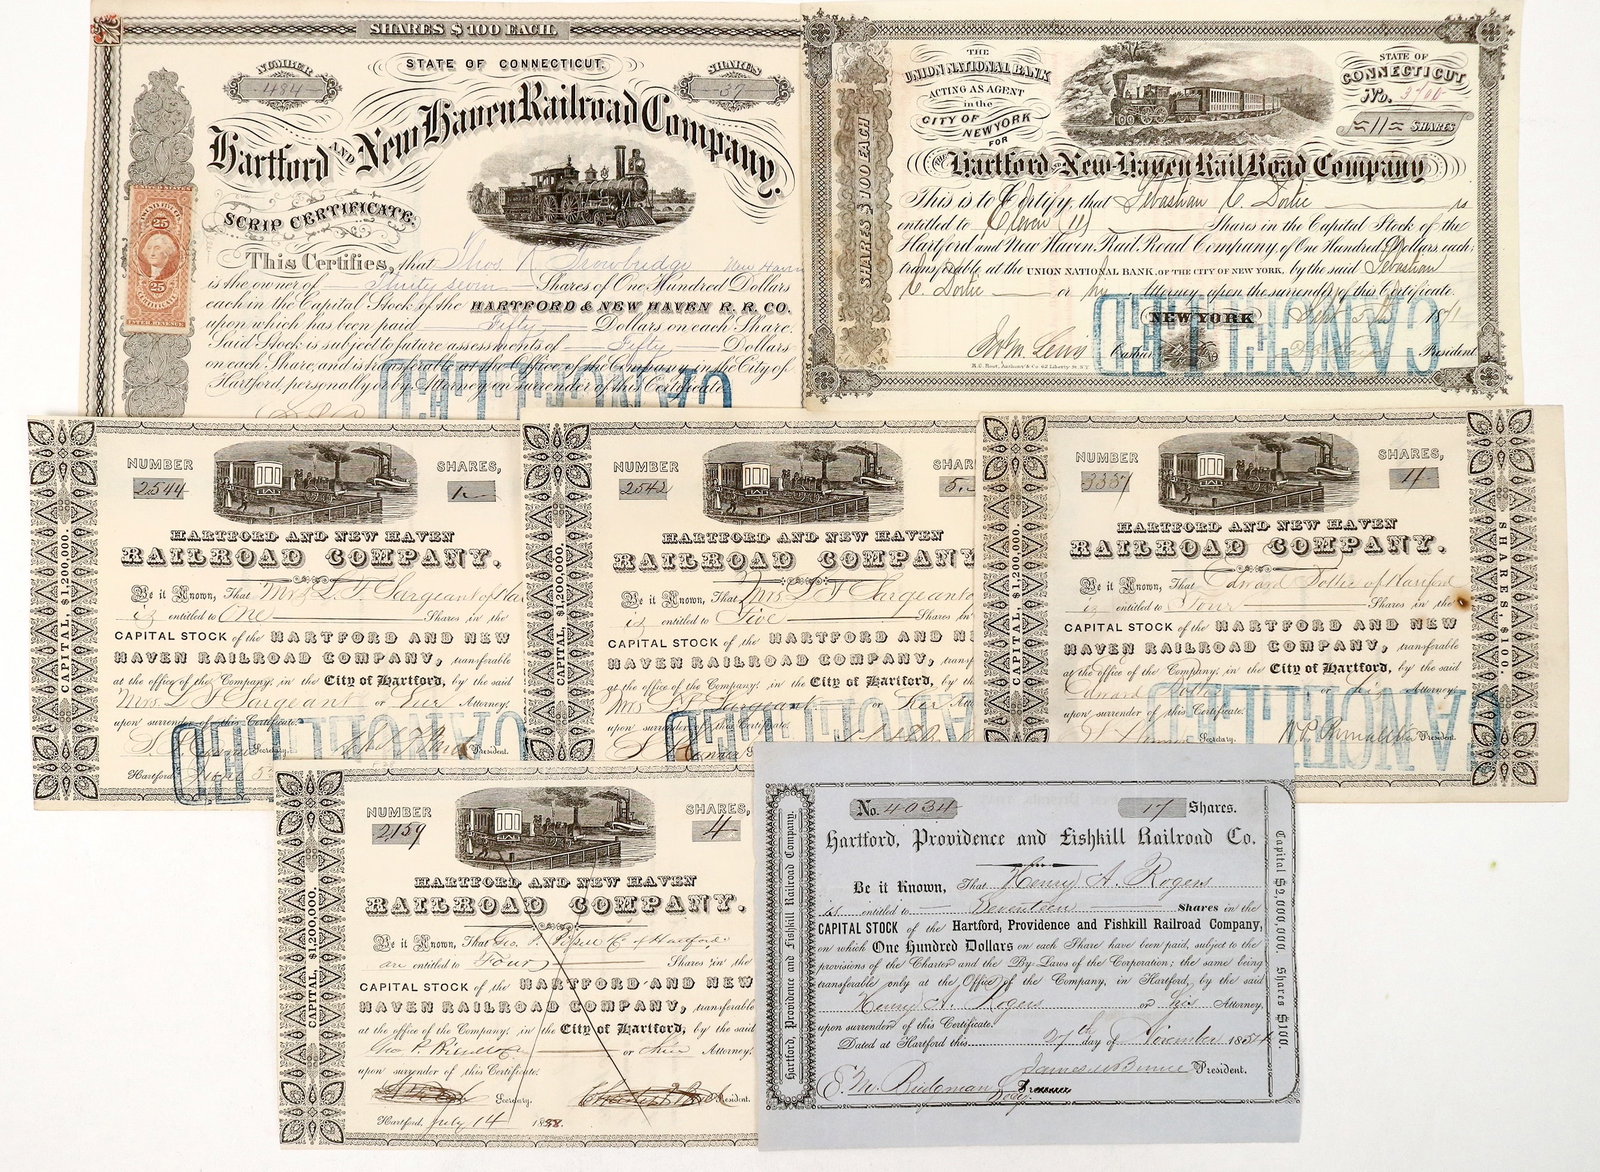 SHARES $100 EACH.
NUMBER
1484
STATE OF CONNECTICUT.
SHARES
37
Hartford AND New Haven Railroad Company.
SCRIP CERTIFICATE.
25 25
This Certifies, that Thos R Trowbridge New Haven
is the owner of Thirty seven Shares of One Hundred Dollars
each in the Capital Stock of the HARTFORD & NEW HAVEN R. R. CO.
upon which has been paid Fifty Dollars on each Share.
Said Stock is subject to future assessments of Fifty Dollars
on each Share, and is transferable at the Office of the Company, in the City of
Hartford, personally or by Attorney on Surrender of this Certificate
CANCELLED
SHARES $100 EACH
THE
UNION NATIONAL BANK
ACTING AS AGENT
in the
CITY OF
NEW YORK
FOR
STATE OF
CONNECTICUT
No. 3700
11 SHARES
THE Hartford AND New-Haven Rail Road Company
This is to Certify, that Sebastian C. Dortic is
entitled to Eleven (11) Shares in the Capital Stock of the
Hartford and New Haven Rail Road Company, of One Hundred Dollars, each
transferable at the UNION NATIONAL BANK, OF THE CITY OF NEW YORK, by the said Sebastian
C. Dortic or by Attorney upon the surrender of this Certificate.
NEW YORK Sept 5th 1871
Wm. Lewis Cashier President
CANCELLED
NUMBER
2544
SHARES,
1
HARTFORD AND NEW HAVEN
RAILROAD COMPANY.
CAPITAL, $1,200,000.
Be it Known, That Mrs L F Sargeant of Har
is entitled to One Shares in the
CAPITAL STOCK of the HARTFORD AND NEW
HAVEN RAILROAD COMPANY, transferable
at the office of the Company, in the City of Hartford, by the said
Mrs L F Sargeant or Her Attorney.
upon surrender of this Certificate.
Secretary. President.
Hartford June 5
CANCELLED
NUMBER
2542
SHAR
5
HARTFORD AND NEW HAVEN
RAILROAD COMPANY
CAPITAL, $1,200,000.
Be it Known, That Mrs L F Sargeant o
is entitled to Five Shares in
CAPITAL STOCK of the HARTFORD AND NE
HAVEN RAILROAD COMPANY, transf
at the office of the Company, in the City of Hartford, by the
Mrs L F Sargeant or Her Att
upon surrender of this Certificate.
CANCELLED
NUMBER
3337
SHARES,
4
HARTFORD AND NEW HAVEN
RAILROAD COMPANY.
CAPITAL, $1,200,000.
SHARES, $100.
Be it Known, That Edward Bolles of Hartford
is entitled to Four Shares in the
CAPITAL STOCK of the HARTFORD AND NEW
HAVEN RAILROAD COMPANY, transferable
at the office of the Company, in the City of Hartford, by the said
Edward or his Attorney
upon surrender of this Certificate.
Secretary. President
CANCELLED
NUMBER
2159
SHARES,
4
HARTFORD AND NEW HAVEN
RAILROAD COMPANY.
CAPITAL, $1,200,000.
Be it Known, That Geo. P. of Hartford
are entitled to Four Shares in the
CAPITAL STOCK of the HARTFORD AND NEW
HAVEN RAILROAD COMPANY, transferable
at the office of the Company, in the City of Hartford, by the said
Geo P. or their Attorney.
upon surrender of this Certificate.
Secretary. President.
Hartford, July 14
No. 4034
17 Shares.
Hartford, Providence and Fishkill Railroad Co.
Hartford, Providence and Fishkill Railroad Company.
Capital $2,000,000. Shares $100.
Be it Known, That Henry A. Rogers
is entitled to Seventeen Shares in the
CAPITAL STOCK of the Hartford, Providence and Fishkill Railroad Company,
on which One Hundred Dollars on each Share have been paid, subject to the
provisions of the Charter and the By-Laws of the Corporation; the same being
transferable only at the Office of the Company, in Hartford, by the said
Henry A. Rogers or his Attorney,
upon surrender of this Certificate.
Dated at Hartford this 27th day of November 1854
President.